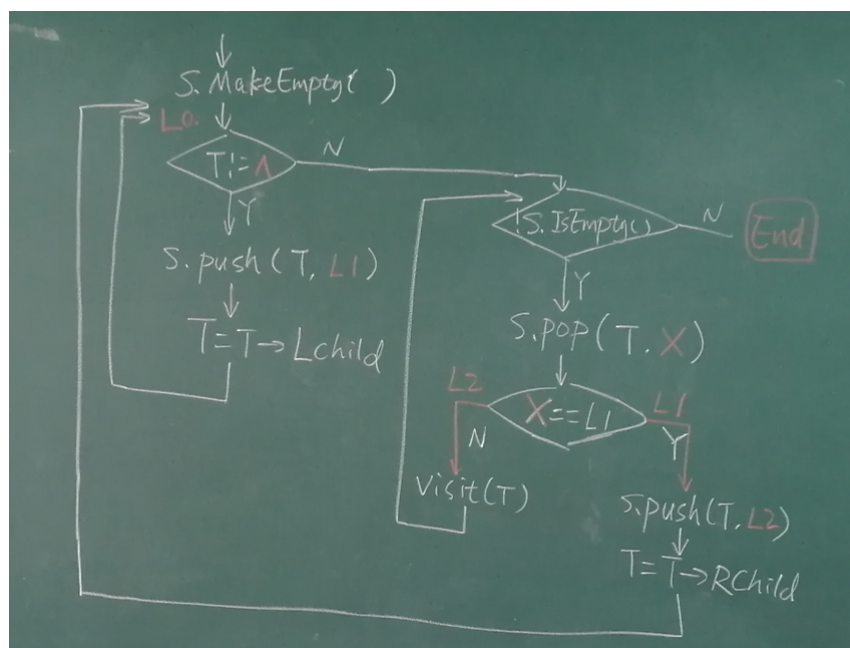 S.MakeEmpty( )
L0.
T!=Λ
N
Y
S.push(T, L1)
T=T→Lchild
!S.IsEmpty()
N
End
Y
S.pop(T.X)
L2
X==L1
L1
N
Y
visit(T)
S.push(T, L2)
T=T→RChild